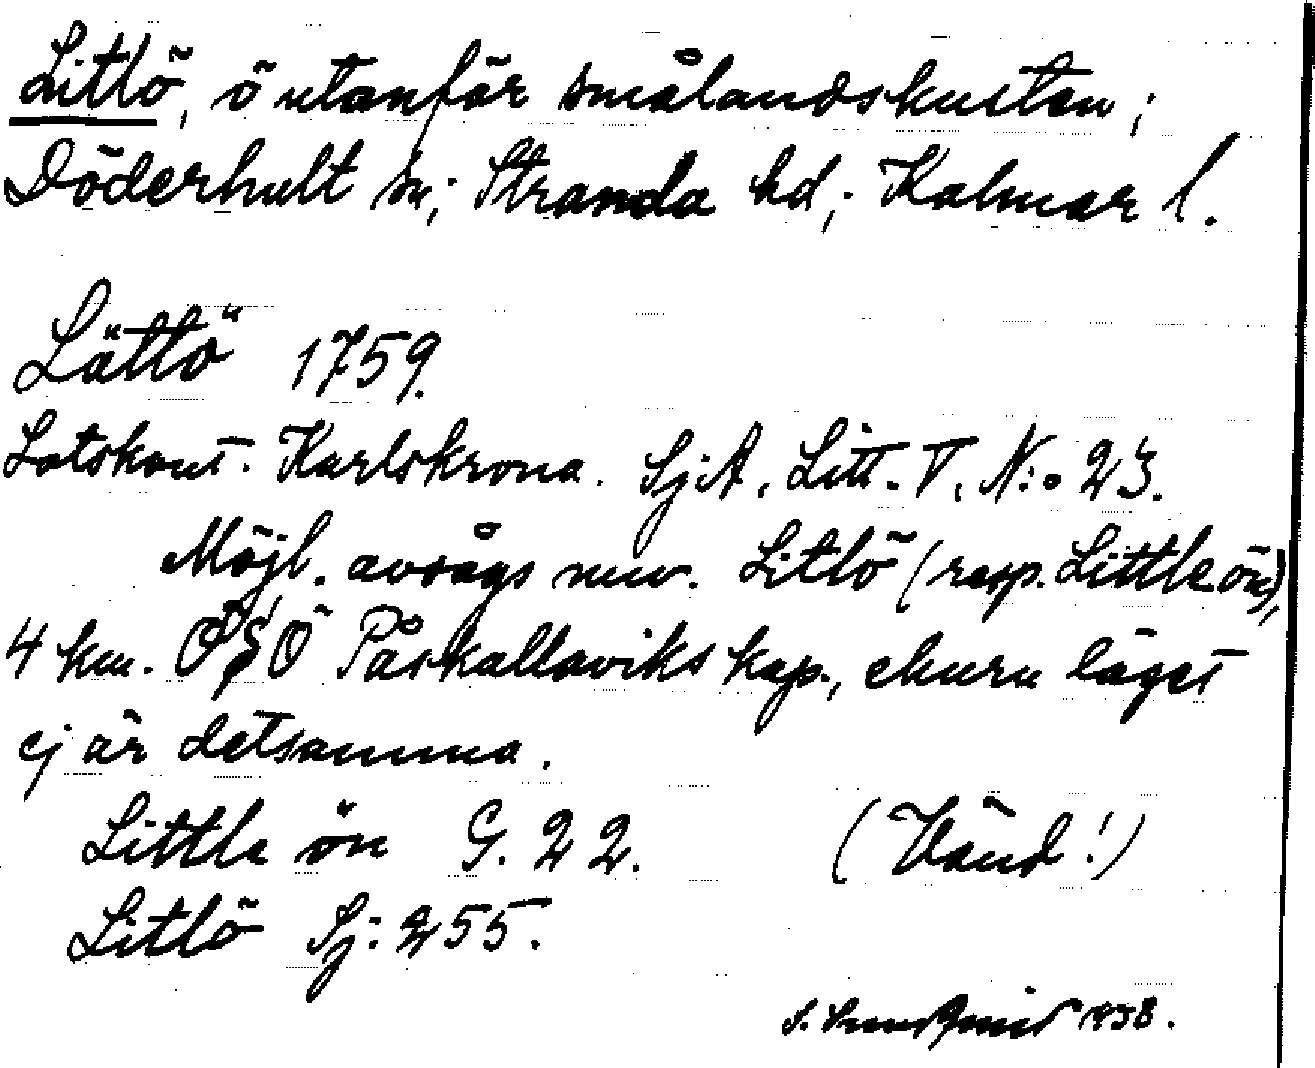 Litlö, ö utanför smålandskusten;
Döderhult sn; Stranda hd; Kalmar l.
Lättö 1759.
Lotskont. Karlskrona. SjA, Litt. T, N:o 23.
Möjl. avsågs nuv. Litlö (resp. Little ön),
4 km. OSO Påskallaviks kap., ehuru läget
ej är detsamma.
Little ön G. 22. (Vänd!)
Litlö Sj: 255.
1938.